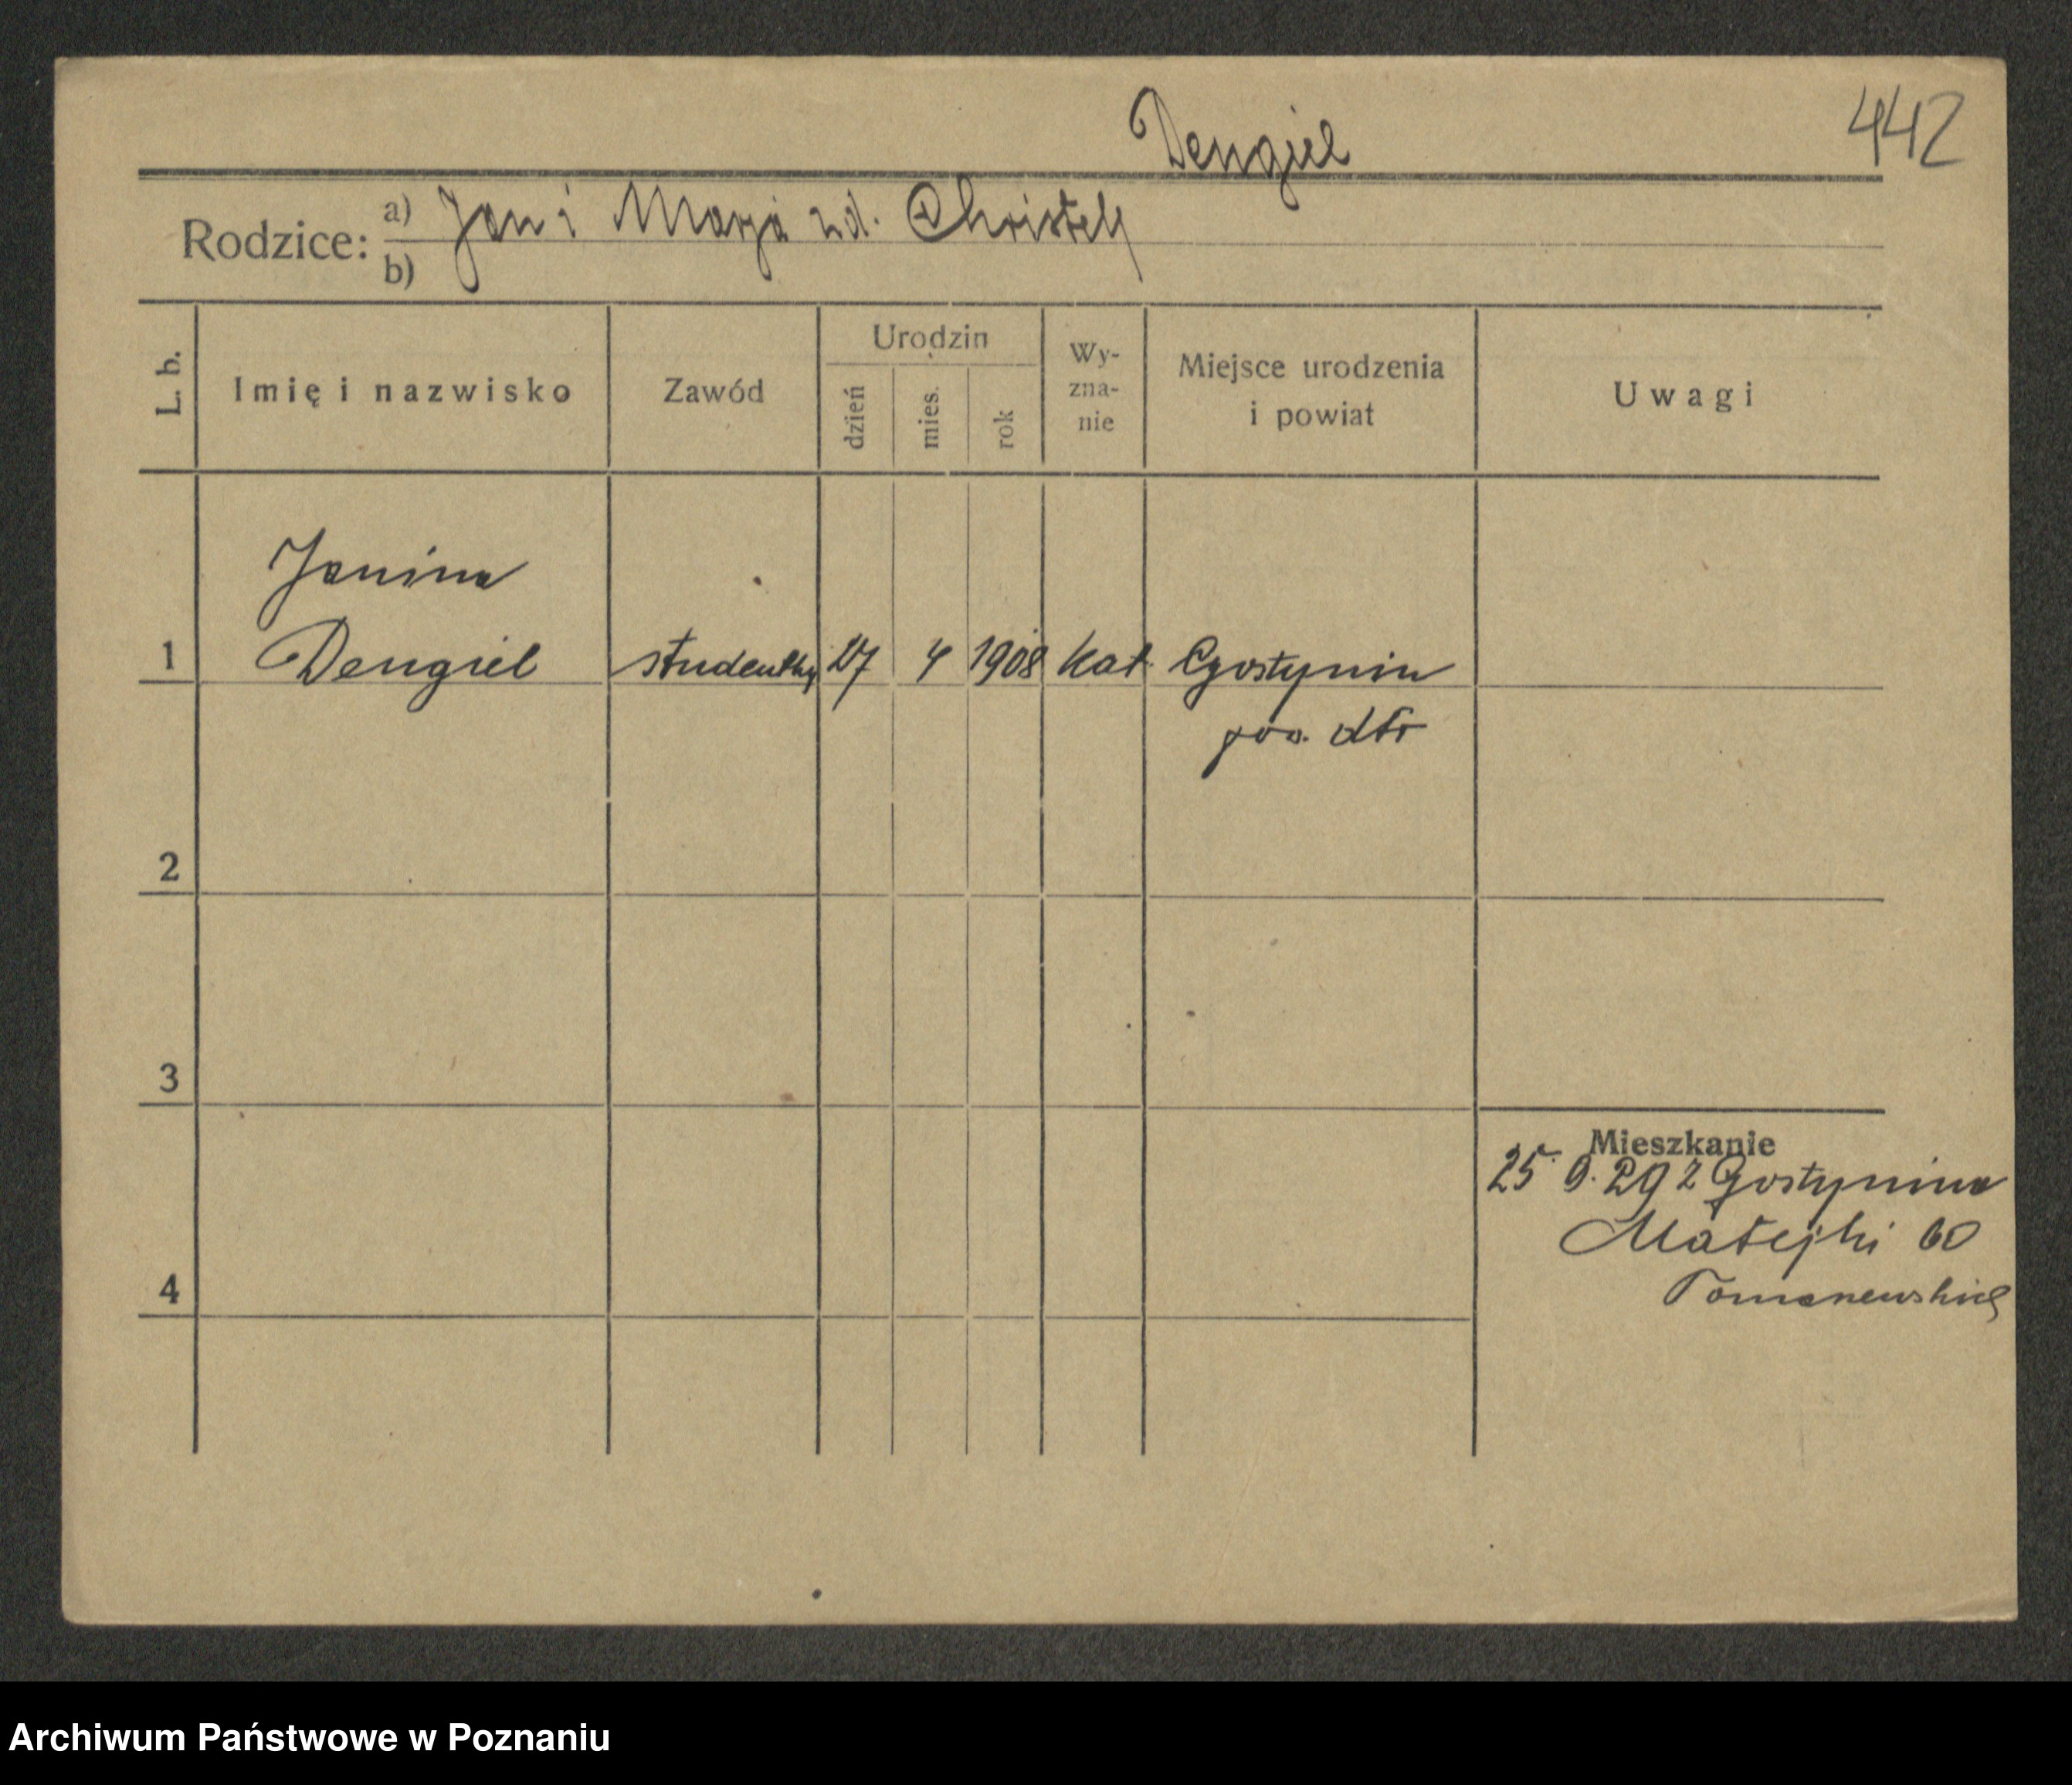 Dengiel
442
Rodzice: a) Jan i Marja zd. Christek
b)
L. b.
Imię i nazwisko
Zawód
Urodzin
dzień
mies.
rok
Wy-
zna-
nie
Miejsce urodzenia
i powiat
Uwagi
Janina
1 Dengiel studentka 27 4 1908 kat Gostynin
pow. dto
2
3
4
Mieszkanie
25 9. 29 z Gostynina
Matejki 60
Archiwum Państwowe w Poznaniu